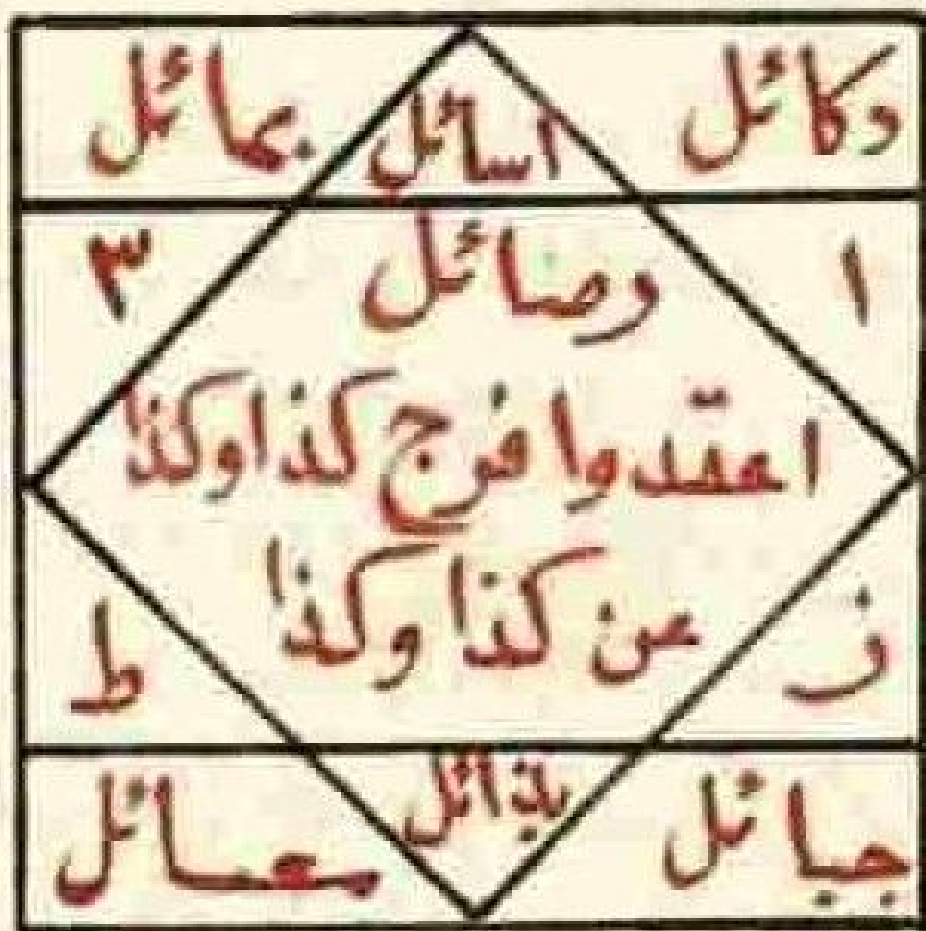 وكائل اسائل بمائل
١ وصائل ٣
اعقدوا فرج كذا وكذا
عن كذا وكذا
ف ط
جبائل بذائل معسائل